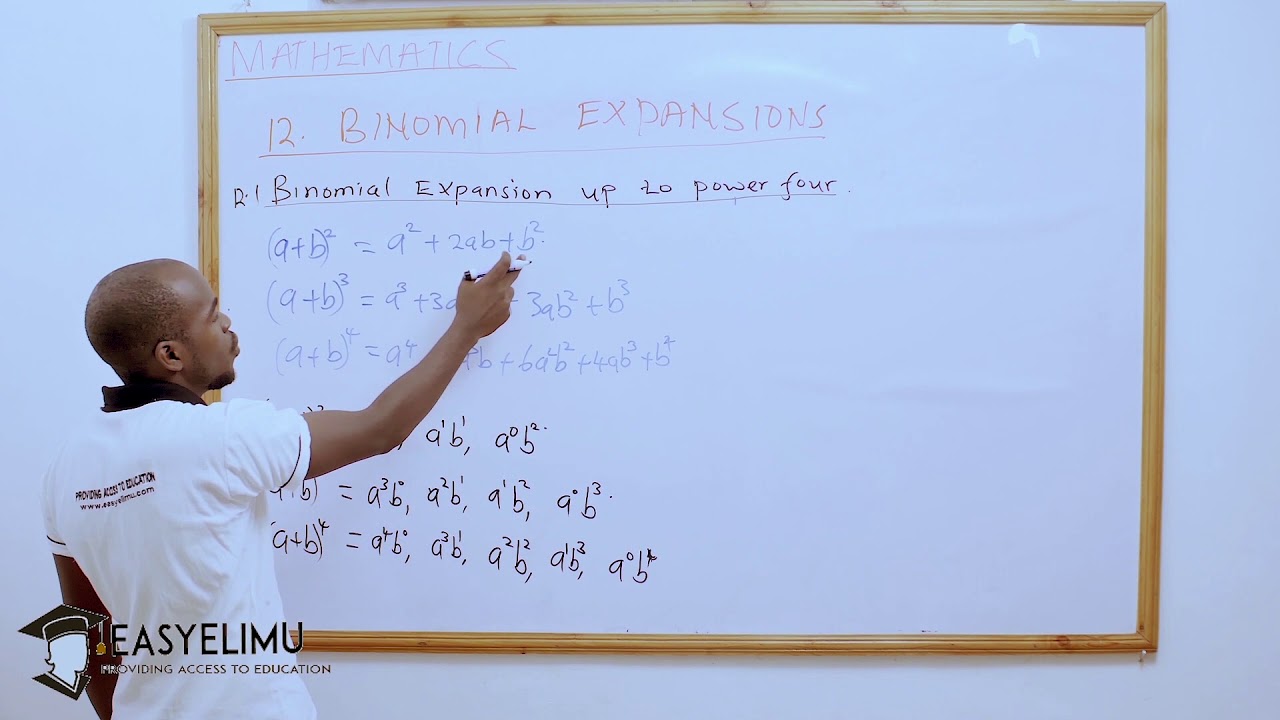 MATHEMATICS
12. BINOMIAL EXPANSIONS
12.1 Binomial Expansion up to power four.
(a+b)² = a² + 2ab + b².
(a+b)³ = a³ + 3a + 3ab² + b³
(a+b)⁴ = a⁴ b + 6a²b² + 4ab³ + b⁴
a¹b¹, a⁰b².
= a³b⁰, a²b¹, a¹b², a⁰b³.
(a+b)⁴ = a⁴b⁰, a³b¹, a²b², a¹b³, a⁰b⁴
PROVIDING ACCESS TO EDUCATION
www.easyelimu.com
EASYELIMU
PROVIDING ACCESS TO EDUCATION